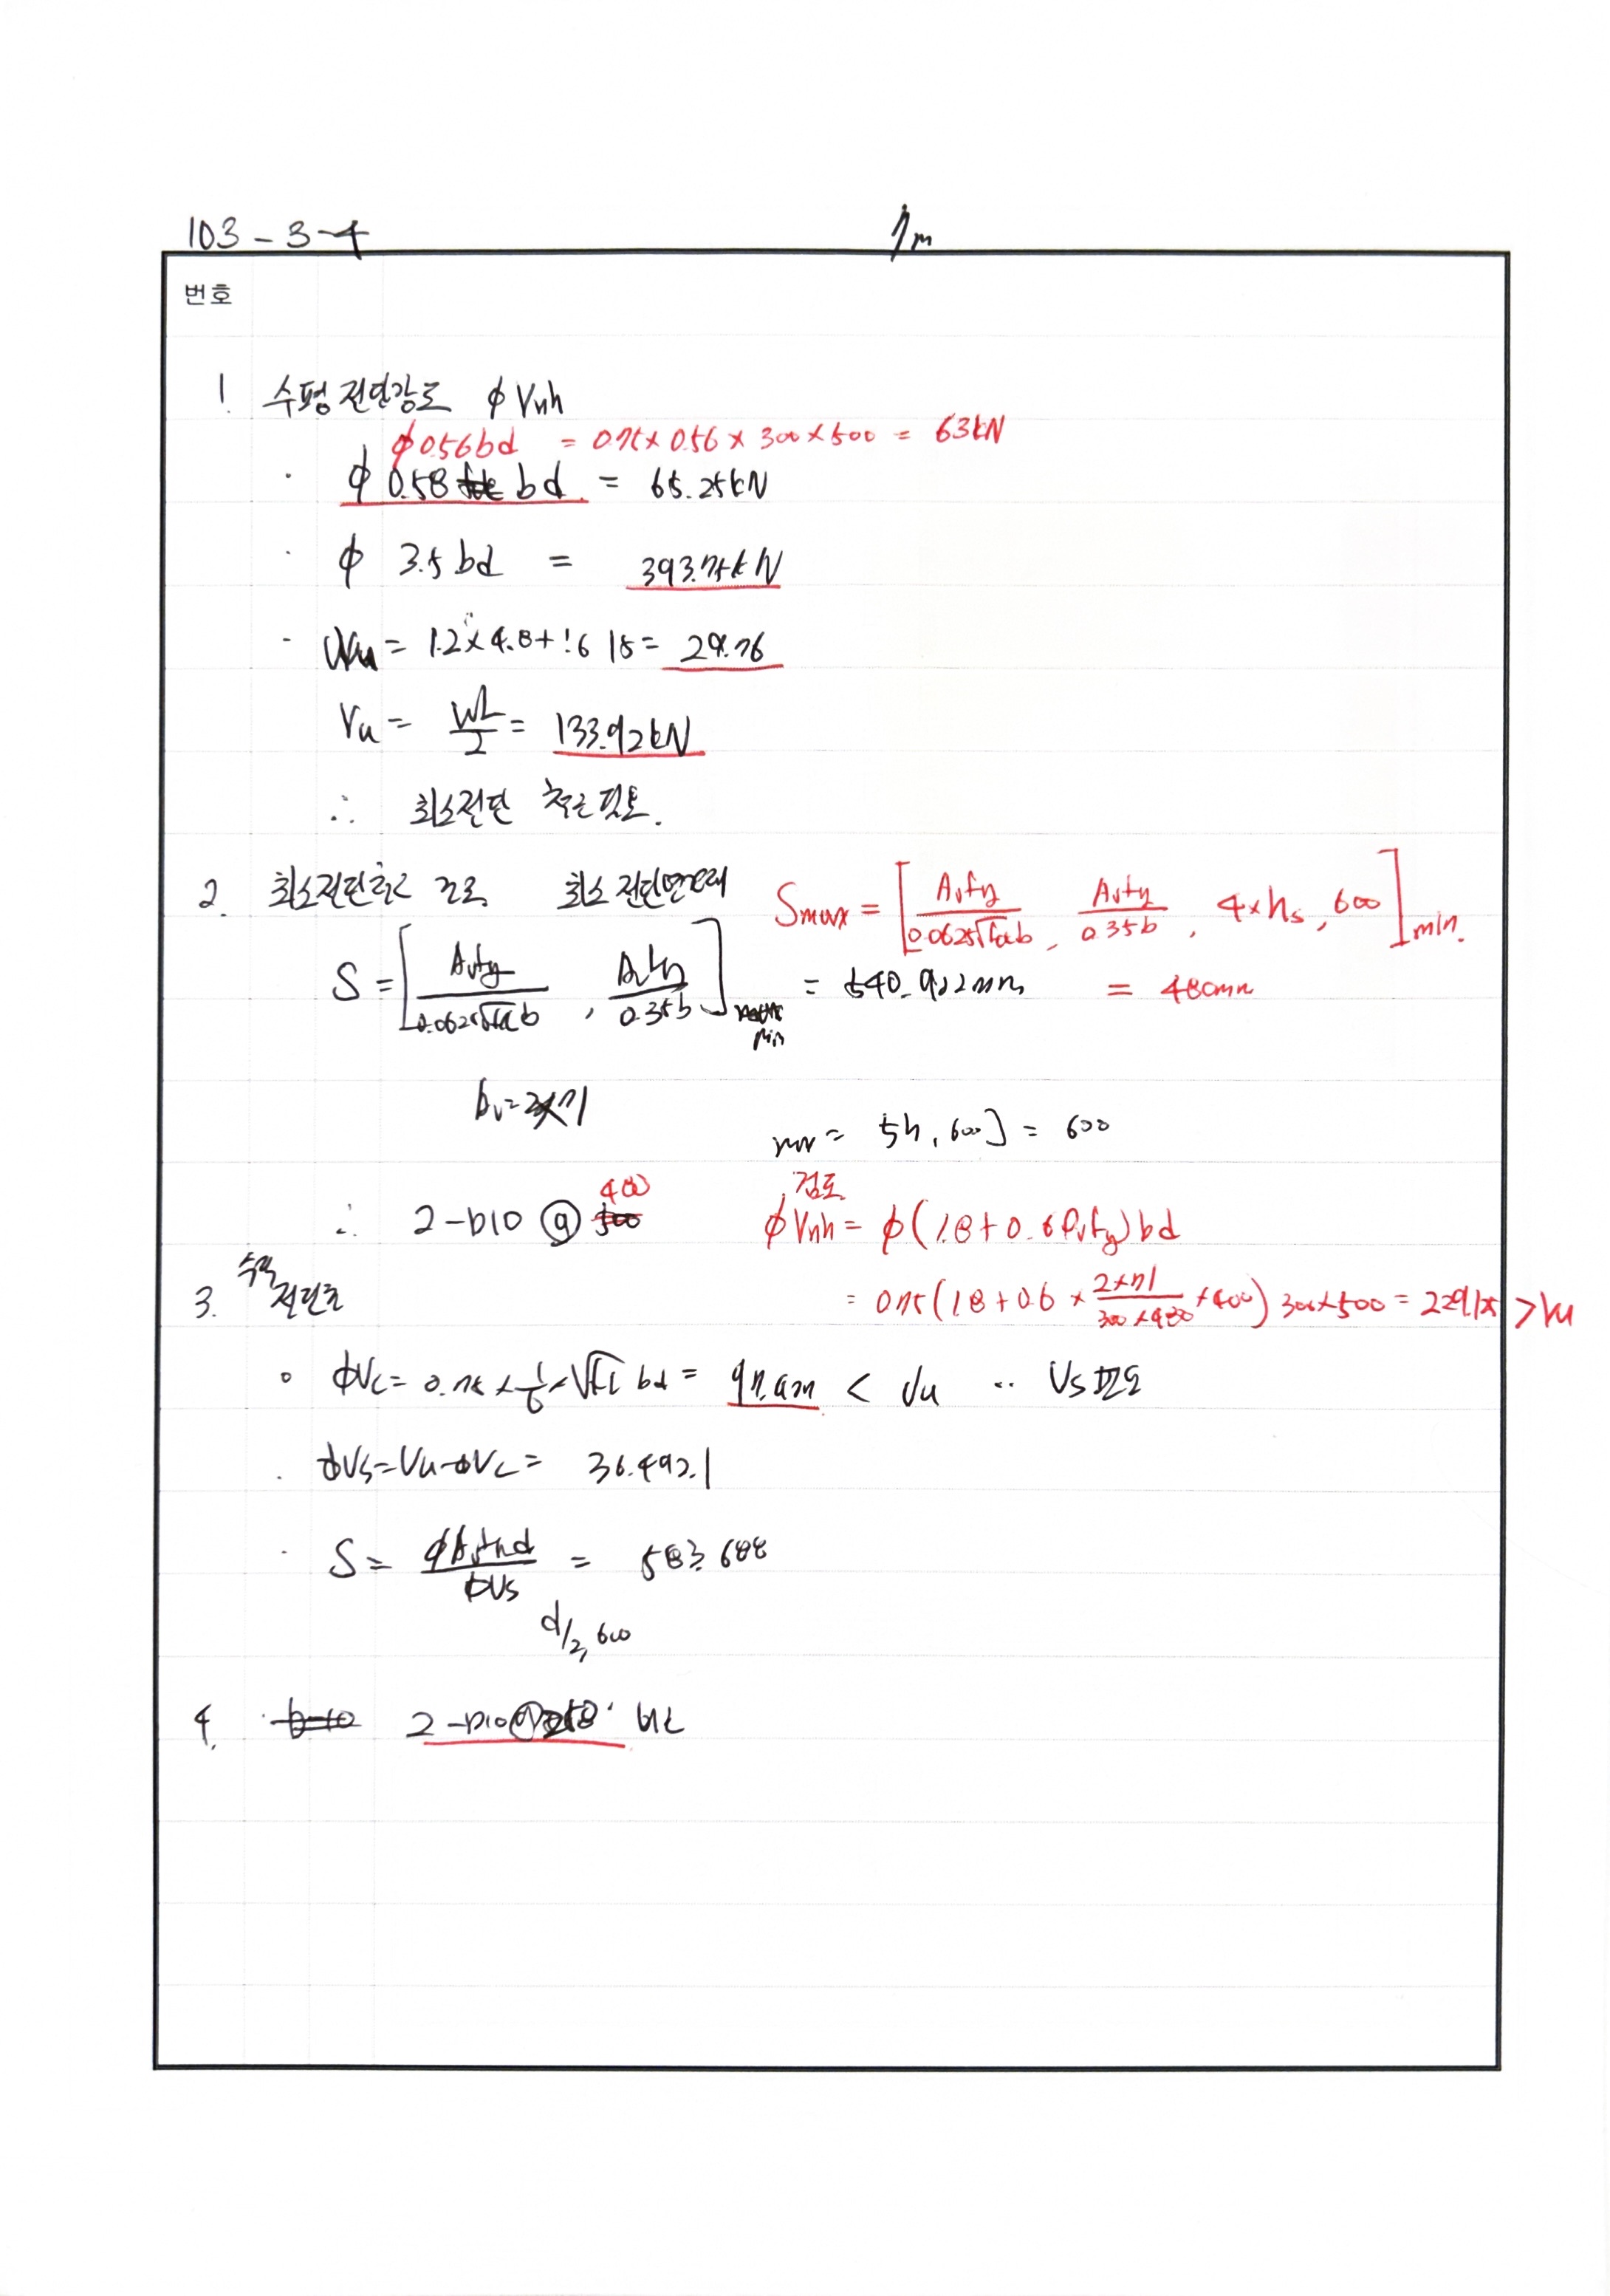 103-3-4
번호
1. 수평전단강도 φVnh
φ0.56bd = 0.75 × 0.56 × 300 × 500 = 63kN
· φ 0.58 bd = 65.25kN
· φ 3.5 bd = 393.75kN
- Wu = 1.2 × 4.8 + 1.6 18 = 29.76
Vu = WL/2 = 133.92kN
∴ 최소전단 철근필요.
2. 최소전단철근 검토. 최소전단연결재
Smax = [Avfy/0.0625√fck b, Avfy/0.35b, 4×hs, 600]min.
S = [Avfy/0.0625√fck b, Avfy/0.35b]min = 540.922mm = 480mm
bv = 2×71
= 5h, 600] = 600
∴ 2-D10 @ 500 400
검토.
φVnh = φ(1.8 + 0.6ρvfy)bd
= 0.75(1.8 + 0.6 × 2×71/300×480 × 400) 300×500 = 229.125 > Vu
3. 수직전단
∘ φVc = 0.75 × 1/6 × √fck bd = < Vu ∴ Vs 필요
· φVs = Vu - φVc = 36.492.1
· S = φAvfyd/φVs = 583.688
d/2, 600
4. D-10 2-D10@250 배치